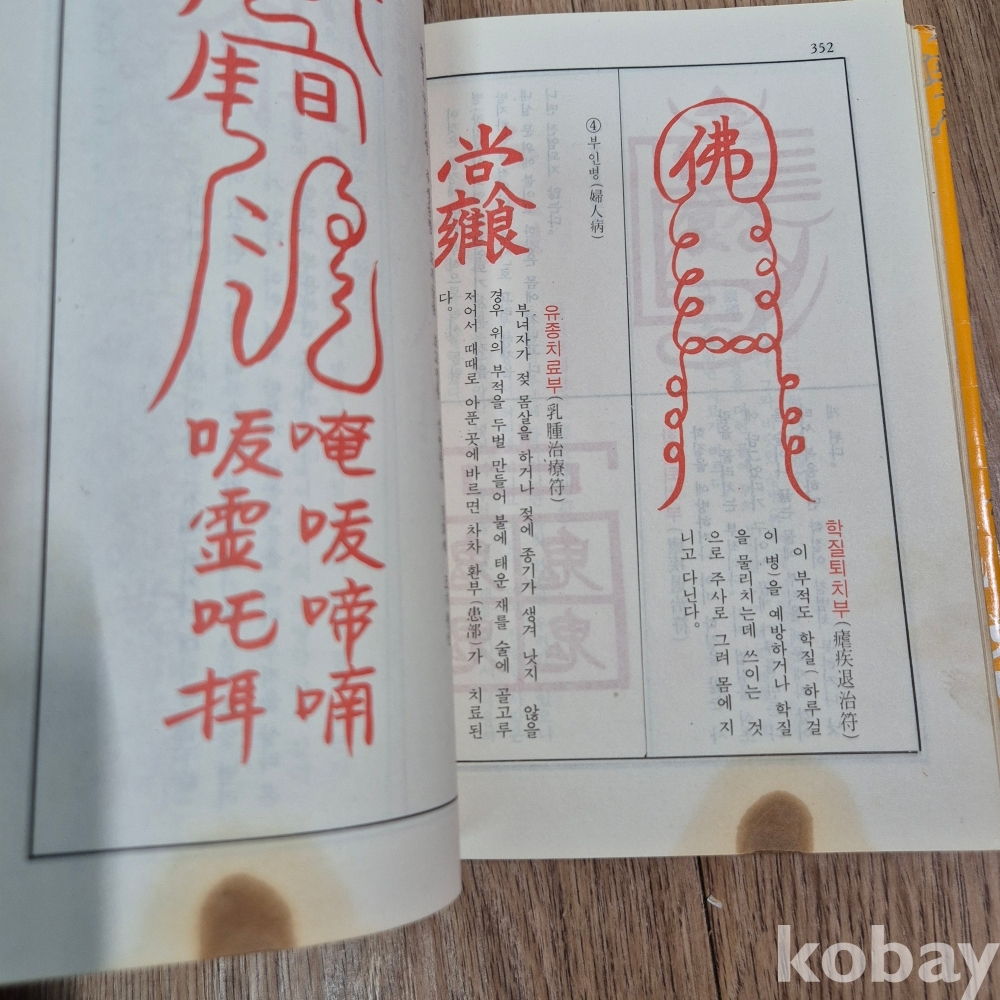 352
佛
학질퇴치부(瘧疾退治符)
이 부적도 학질(하루걸
이 병)을 예방하거나 학질
을 물리치는데 쓰이는 것
으로 주사로 그려 몸에 지
니고 다닌다。
④부인병(婦人病)
尙
雍食
유종치료부(乳腫治療符)
부녀자가 젖 몸살을 하거나 젖에 종기가 생겨 낫지 않을
경우 위의 부적을 두벌 만들어 불에 태운 재를 술에 골고루
저어서 때때로 아푼 곳에바르면 차차 환부(患部)가 치료된
다。
日
唵 啼喃
霊吒
kobay